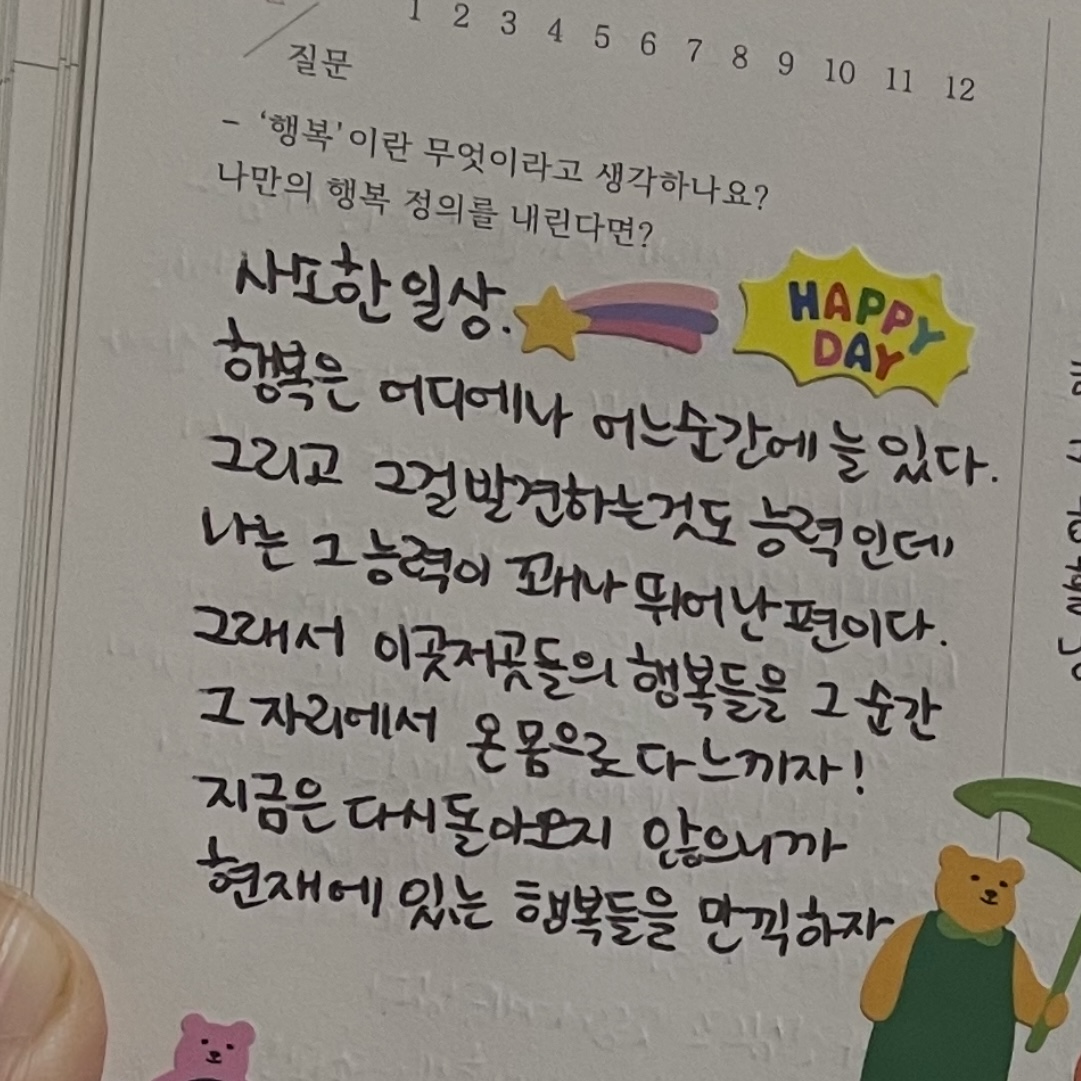 1 2 3 4 5 6 7 8 9 10 11 12
질문
- ‘행복’이란 무엇이라고 생각하나요?
나만의 행복 정의를 내린다면?
사소한 일상.
HAPPY
DAY
행복은 어디에나 어느순간에 늘 있다.
그리고 그걸 발견하는것도 능력인데
나는 그 능력이 꽤나 뛰어난 편이다.
그래서 이곳저곳들의 행복들을 그 순간
그 자리에서 온 몸으로 다 느끼자!
지금은 다시 돌아오지 않으니까
현재에 있는 행복들을 만끽하자